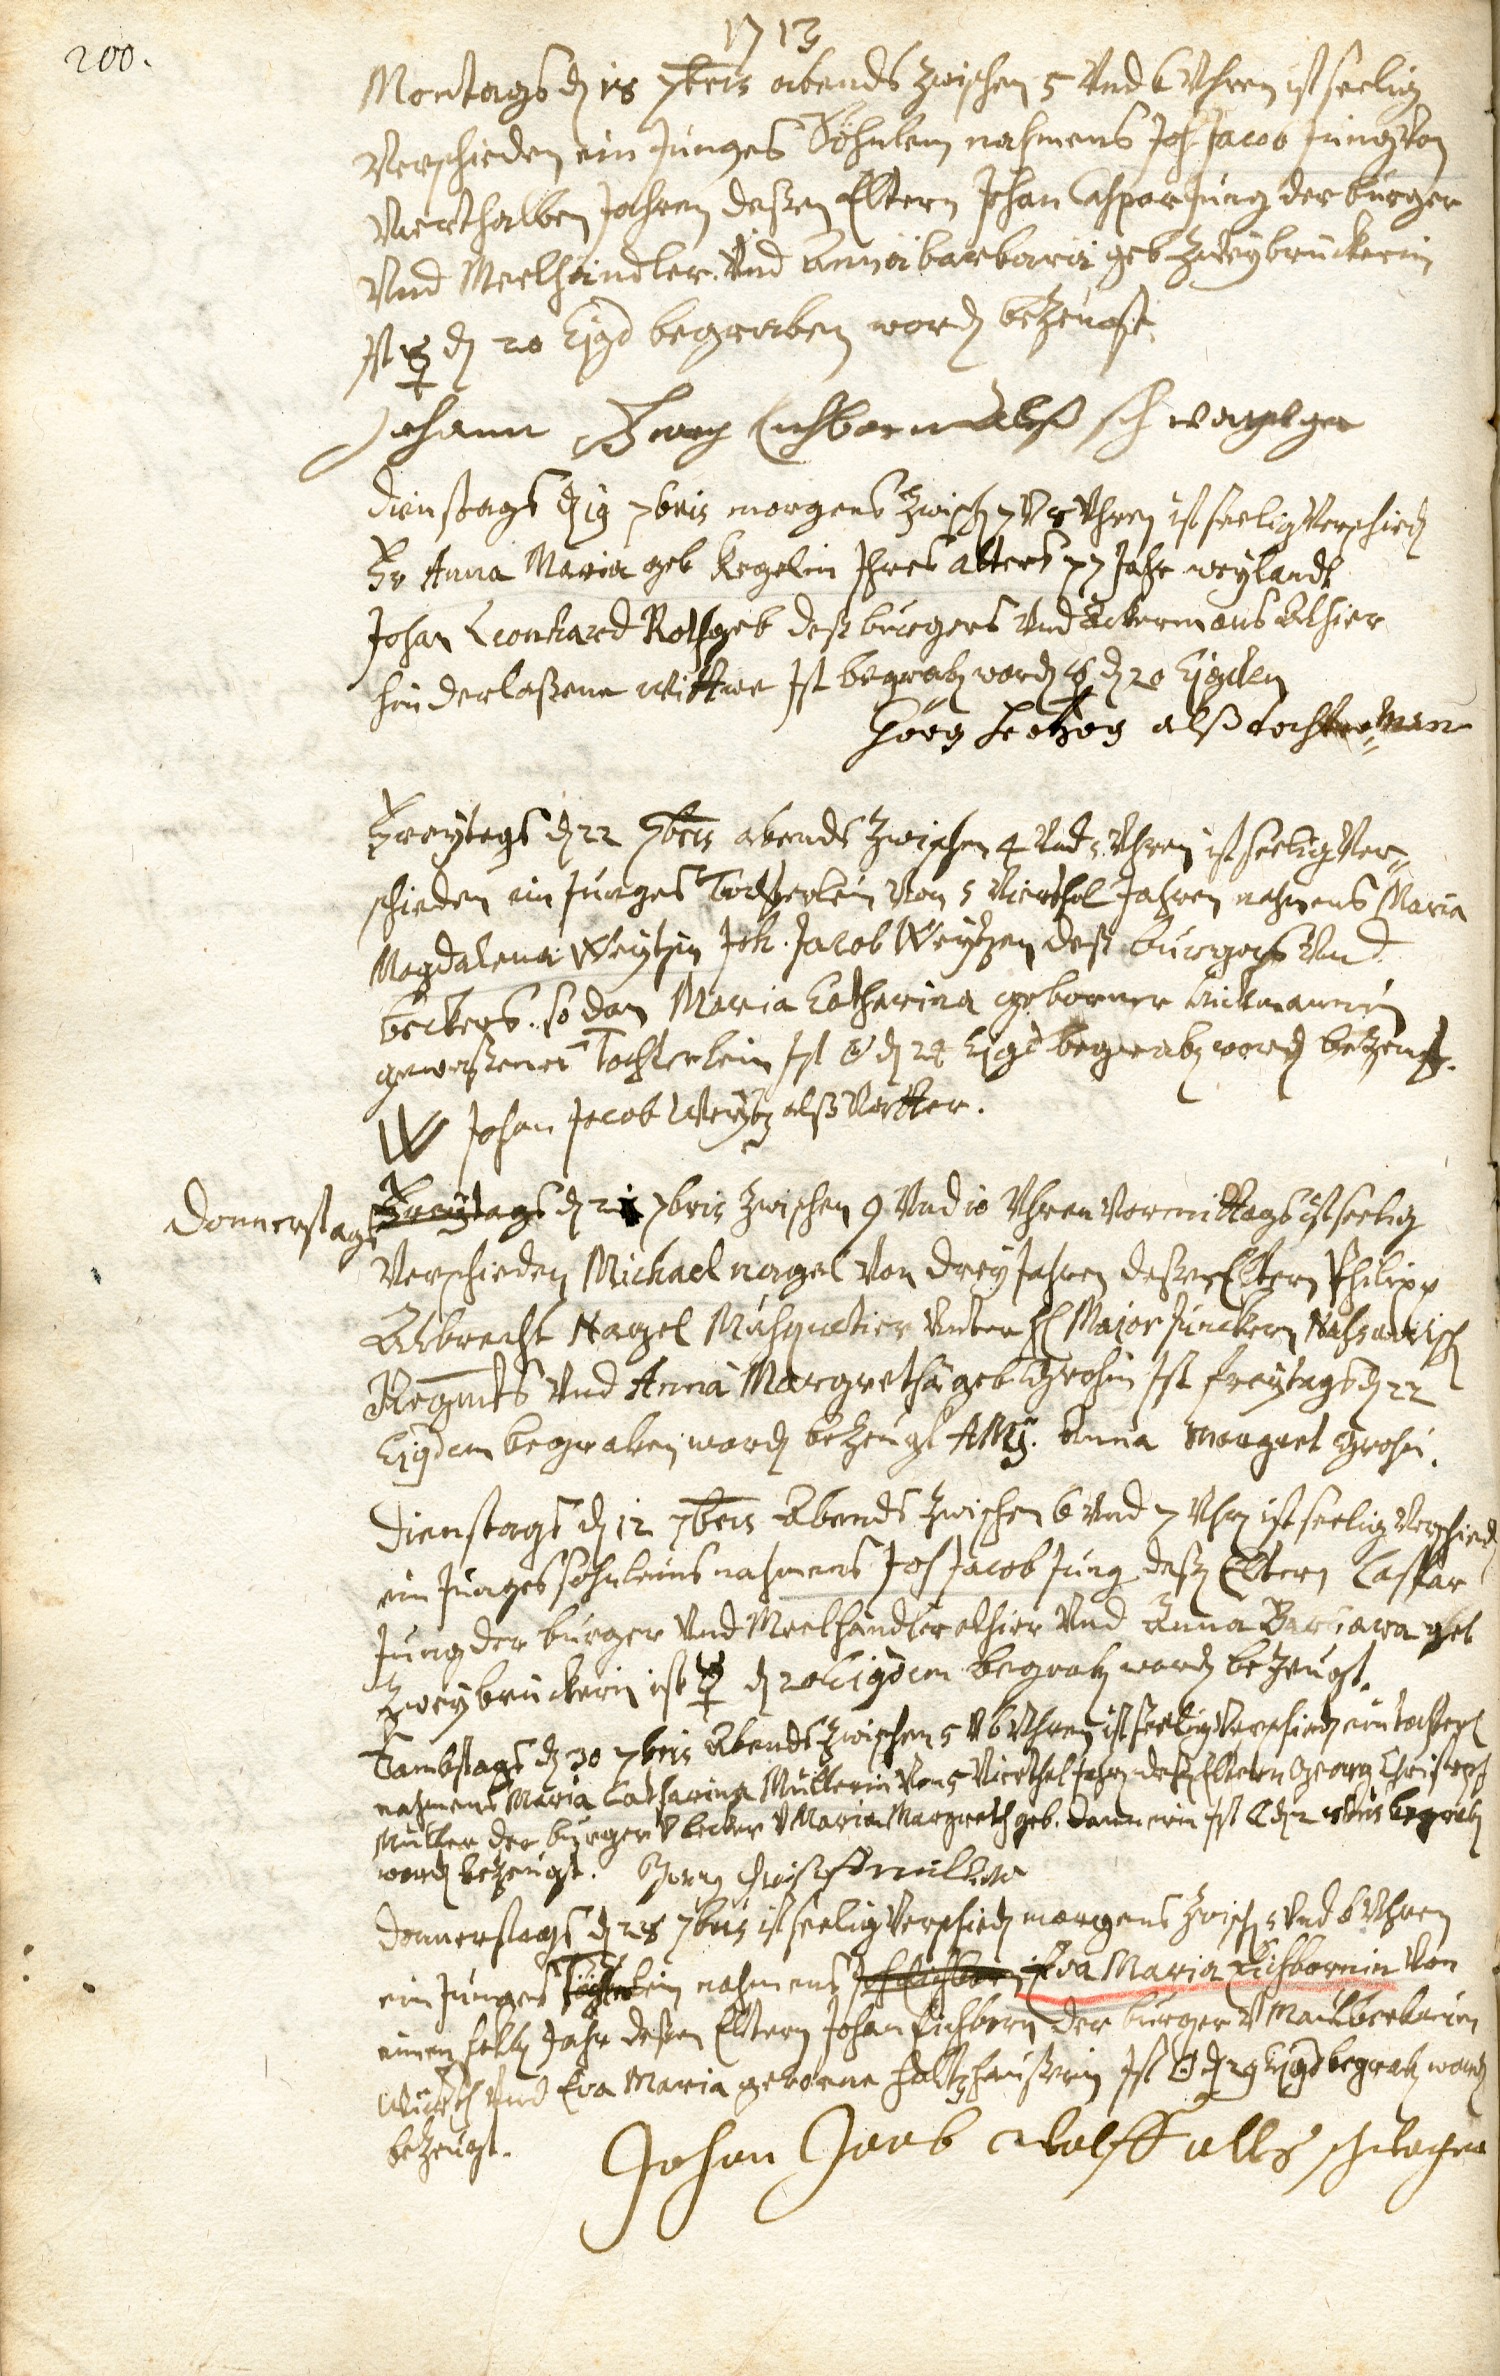 200.
1713
Montags d 18 7bris abends zwischen 5 Vnd 6 Vhren ist seelig
Verschieden ein Junges Söhnlein nahmens Joh Jacob Jung Von
Vierthalben Jahren deßen Eltern Johan Caspar Jung der burger
Vnd Meelhändler Vnd Anna barbara geb Zweybrückerin
Ist ☿ d 20 Ejqd begraben word bezeugt.
Johann Eichborn alß schwager
Dienstags d 19 7bris morgens zwisch 7 V 8 Vhren ist seelig Verschied
Fr Anna Maria geb Kegelin Ihres alters 77 Jahr weylandt
Johan Leonhard Rothgeb deß burgers Vnd Ackermans Alhier
hinderlaßene wittwe Ist begrab word ☿ d 20 Ejqden
Görg Hertzog alß tochterman
Freytags d 22 7bris abends zwischen 4 Vnd 5 Vhren ist seelig Ver=
schieden ein Junges Töchterlein Von 5 Vierthel Jahren nahmens Maria
Magdalena Weytzin Joh. Jacob Weytzen deß burgers Vnd
beckers. so dan Maria Catharina geborner
geweßenes Töchterlein Ist d 24 Ejqd begrab word bezeugt.
W Johan Jacob Weytz alß Vatter.
Donnerstags Freytags d 21 7bris zwischen 9 Vnd 10 Vhren Vormittags ist seelig
Verschieden Michael nagel Von drey Jahren deßen Eltern Philipp
Albrecht Nagel Musquetier Vnter H Major Junckern Naßauisch
Regmts Vnd Anna Margretha geb Grohin Ist freytags d 22
Ejqdem begraben word bezeugt AMG. Anna Margret Grohin.
Dienstags d 12 7bris Abends zwischen 6 Vnd 7 Vhr ist seelig Verschied
ein Junges söhnleins nahmens Joh Jacob Jung deß Eltern Caspar
Jung der burger Vnd Meelhändler alhier Vnd Anna Barbara geb
Zweybrückerin ist ☿ d 20 Ejqdem begrab word bezeugt.
Sambstags d 30 7bris Abends zwischen 5 V 6 Vhren ist seelig Verschied ein töchterl
nahmens Maria Catharina Müllerin Von 5 Vierthel Jahr deß Eltern Georg Christoph
Müller der burger V becker V Maria Margreth geb. Dannerin Ist ☾ d 2 8bris begrab
word bezeugt. Georg Christoff müller
Donnerstags d 28 7bris ist seelig Verschied morgens zwisch 5 Vnd 6 Vhren
ein Junges Töchterlein nahmens Eva Maria Eichbornin Von
einem halb Jahr deßen Eltern Johan Eichborn der burger V
Würth Vnd Eva Maria geborne Holtzhaußerin Ist d 29 Ejqd begrab word
bezeugt. Johan Jacob Wolff alls schwager